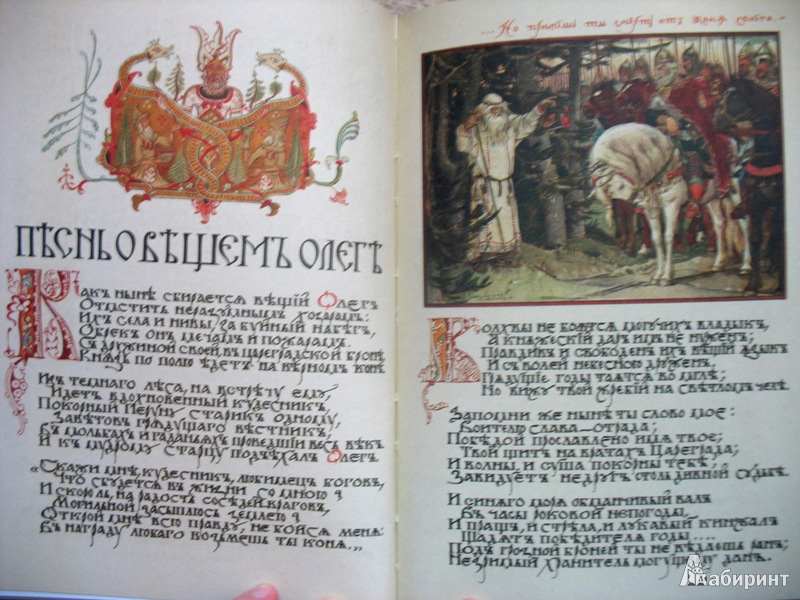 ПѢСНЬ О ВѢЩЕМЪ ОЛЕГѢ
Какъ нынѣ сбирается вѣщій Олегъ
Отмстить неразумнымъ хозарамъ:
Ихъ села и нивы, за буйный набѣгъ,
Обрекъ онъ мечамъ и пожарамъ.
Съ дружиной своей, въ цареградской бронѣ,
Князь по полю ѣдетъ на вѣрномъ конѣ.
Изъ темнаго лѣса, на встрѣчу ему,
Идетъ вдохновенный кудесникъ,
Покорный Перуну старикъ одному,
Завѣтовъ грядущаго вѣстникъ,
Въ мольбахъ и гаданьяхъ проведшій весь вѣкъ
И къ мудрому старцу подъѣхалъ Олегъ.
«Скажи мнѣ, кудесникъ, любимецъ боговъ,
Что сбудется въ жизни со мною?
И скоро ль, на радость сосѣдей враговъ,
Могильной засыплюсь землею?
Открой мнѣ всю правду, не бойся меня:
Въ награду любаго возьмешь ты коня...
...Но примешь ты смерть отъ коня своего.
Волхвы не боятся могучихъ владыкъ,
А княжескій даръ имъ не нуженъ;
Правдивъ и свободенъ ихъ вѣщій языкъ
И съ волей небесною друженъ.
Грядущіе годы таятся во мглѣ;
Но вижу твой жребій на свѣтломъ челѣ.
Запомни же нынѣ ты слово мое:
Воителю слава – отрада;
Побѣдой прославлено имя твое;
Твой щитъ на вратахъ Цареграда;
И волны, и суша покорны тебѣ;
Завидуетъ недругъ столь дивной судьбѣ.
И синяго моря обманчивый валъ
Въ часы роковой непогоды,
И пращъ, и стрѣла, и лукавый кинжалъ
Щадятъ побѣдителя годы....
Подъ грозной броней ты не вѣдаешь ранъ;
Незримый хранитель могущему данъ.
Лабиринт